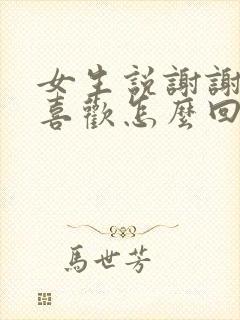 女生說謝謝
喜歡怎麼回
馬世芳